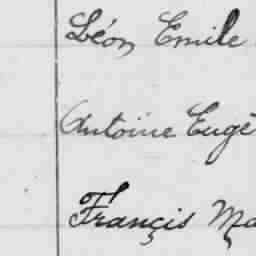 Léon Emile
Antoine Eugè
François Ma